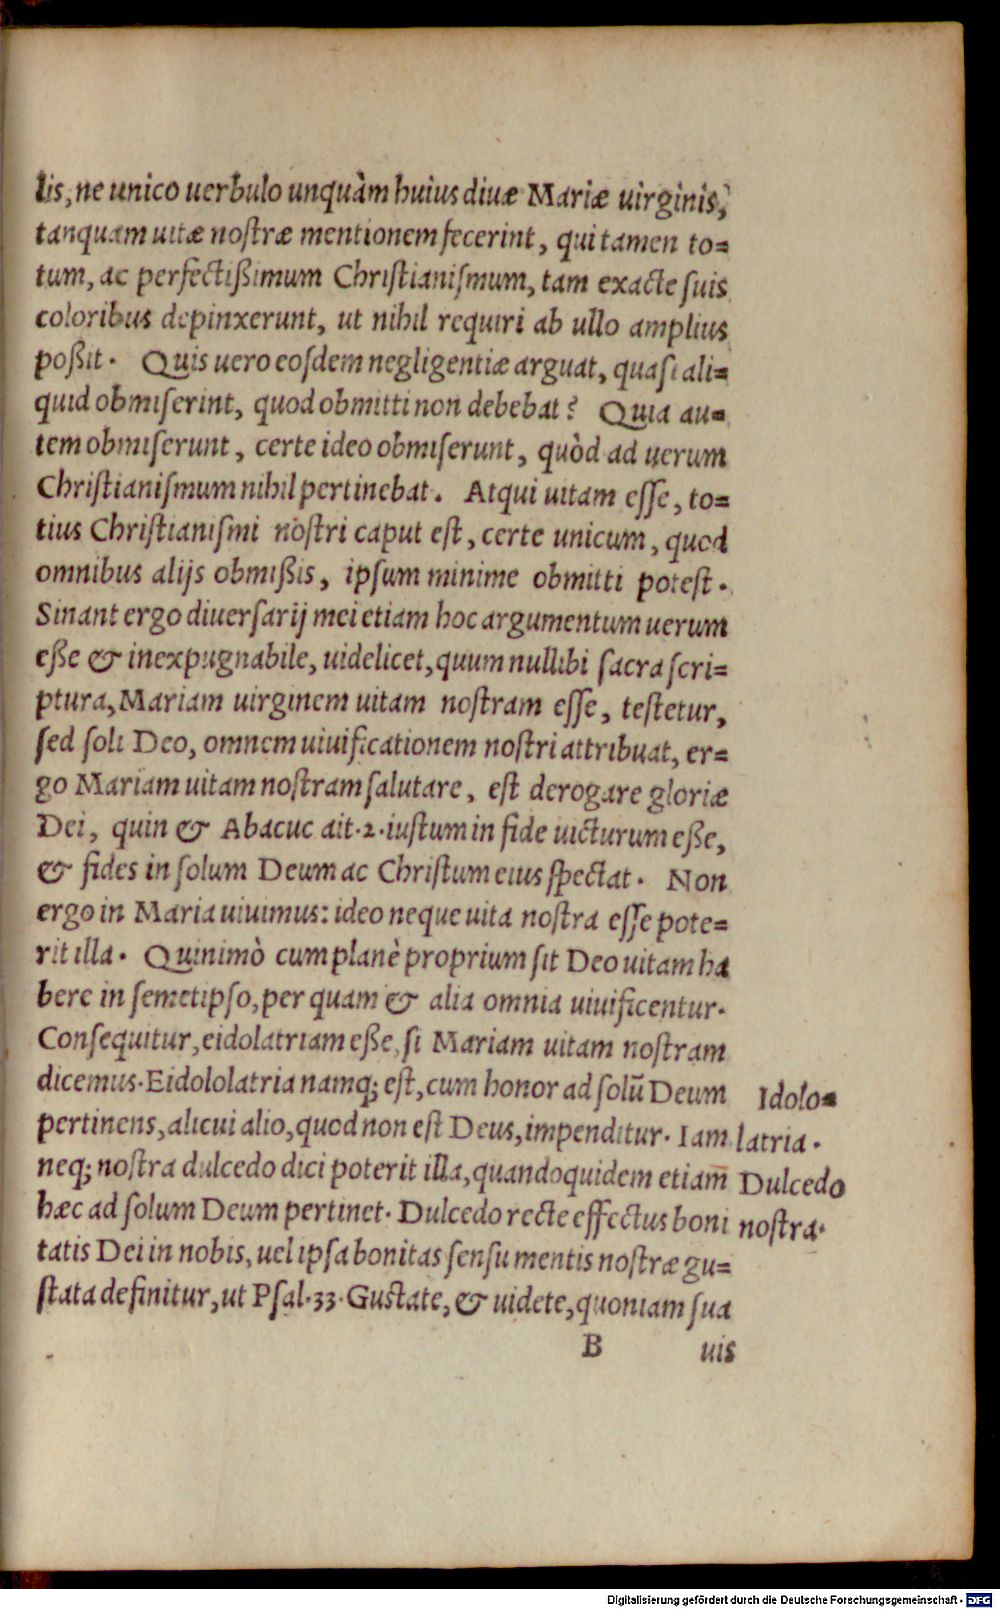 lis, ne unico uerbulo unquàm huius diuæ Mariæ uirginis,
tanquam uitæ nostræ mentionem fecerint, qui tamen to=
tum, ac perfectißimum Christianismum, tam exacte suis
coloribus depinxerunt, ut nihil requiri ab ullo amplius
poßit. Quis uero eosdem negligentiæ arguat, quasi ali=
quid obmiserint, quod obmitti non debebat? Quia au=
tem obmiserunt, certe ideo obmiserunt, quòd ad uerum
Christianismum nihil pertinebat. Atqui uitam esse, to=
tius Christianismi nostri caput est, certe unicum, quod
omnibus alijs obmißis, ipsum minime obmitti potest.
Sinant ergo diuersarij mei etiam hoc argumentum uerum
eße & inexpugnabile, uidelicet, quum nullibi sacra scri=
ptura, Mariam uirginem uitam nostram esse, testetur,
sed soli Deo, omnem uiuificationem nostri attribuat, er=
go Mariam uitam nostram salutare, est derogare gloriæ
Dei, quin & Abacuc ait.2.iustum in fide uicturum eße,
& fides in solum Deum ac Christum eius spectat. Non
ergo in Maria uiuimus: ideo neque uita nostra esse pote=
rit illa. Quinimò cum planè proprium sit Deo uitam ha
bere in semetipso, per quam & alia omnia uiuificentur.
Consequitur, eidolatriam eße, si Mariam uitam nostram
dicemus. Eidololatria namq; est, cum honor ad solũ Deum
pertinens, alicui alio, quod non est Deus, impenditur. Iam
neq; nostra dulcedo dici poterit illa, quandoquidem etiam̅
hæc ad solum Deum pertinet. Dulcedo recte effectus boni
tatis Dei in nobis, uel ipsa bonitas sensu mentis nostræ gu=
stata definitur, ut Psal.33.Gustate, & uidete, quoniam sua
B uis
Idolo=
latria.
Dulcedo
nostra.
Digitalisierung gefördert durch die Deutsche Forschungsgemeinschaft - DFG